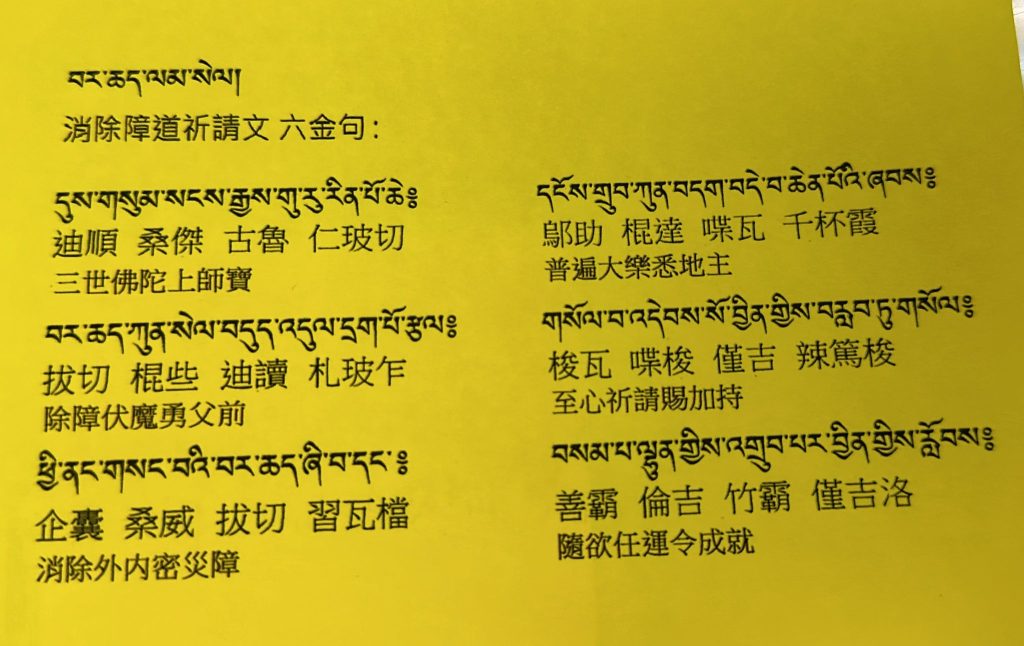 བར་ཆད་ལམ་སེལ།
消除障道祈請文 六金句：
དུས་གསུམ་སངས་རྒྱས་གུ་རུ་རིན་པོ་ཆེ༔
迪順 桑傑 古魯 仁玻切
三世佛陀上師寶
དངོས་གྲུབ་ཀུན་བདག་བདེ་བ་ཆེན་པོའི་ཞབས༔
鄔助 棍達 喋瓦 千杯霞
普遍大樂悉地主
བར་ཆད་ཀུན་སེལ་བདུད་འདུལ་དྲག་པོ་རྩལ༔
拔切 棍些 迪讀 札玻乍
除障伏魔勇父前
གསོལ་བ་འདེབས་སོ་བྱིན་གྱིས་བརླབ་ཏུ་གསོལ༔
梭瓦 喋梭 僅吉 辣篤梭
至心祈請賜加持
ཕྱི་ནང་གསང་བའི་བར་ཆད་ཞི་བ་དང་༔
企囊 桑威 拔切 習瓦檔
消除外內密災障
བསམ་པ་ལྷུན་གྱིས་འགྲུབ་པར་བྱིན་གྱིས་རློབས༔
善霸 倫吉 竹霸 僅吉洛
隨欲任運令成就